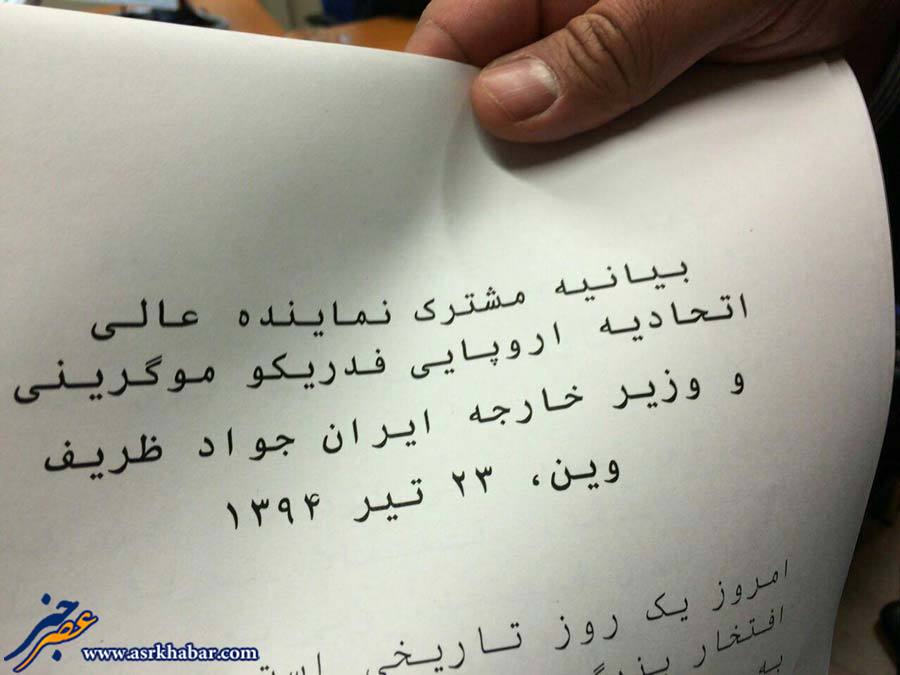 بیانیه مشترک نماینده عالی
اتحادیه اروپایی فدریکو موگرینی
و وزیر خارجه ایران جواد ظریف
وین، ۲۳ تیر ۱۳۹۴
امروز یک روز تاریخی است
افتخار
به
عصر خبر
www.asrkhabar.com